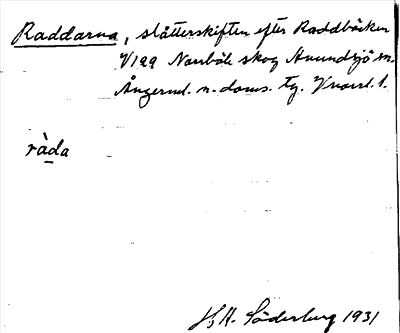 Raddarna, slåtterskiften efter Raddbäcken
V199 Norrböle skog Anundsjö sn.
Ångerml. n. doms. Tg. Vnorrl. l.
ràda
H. Söderberg 1931